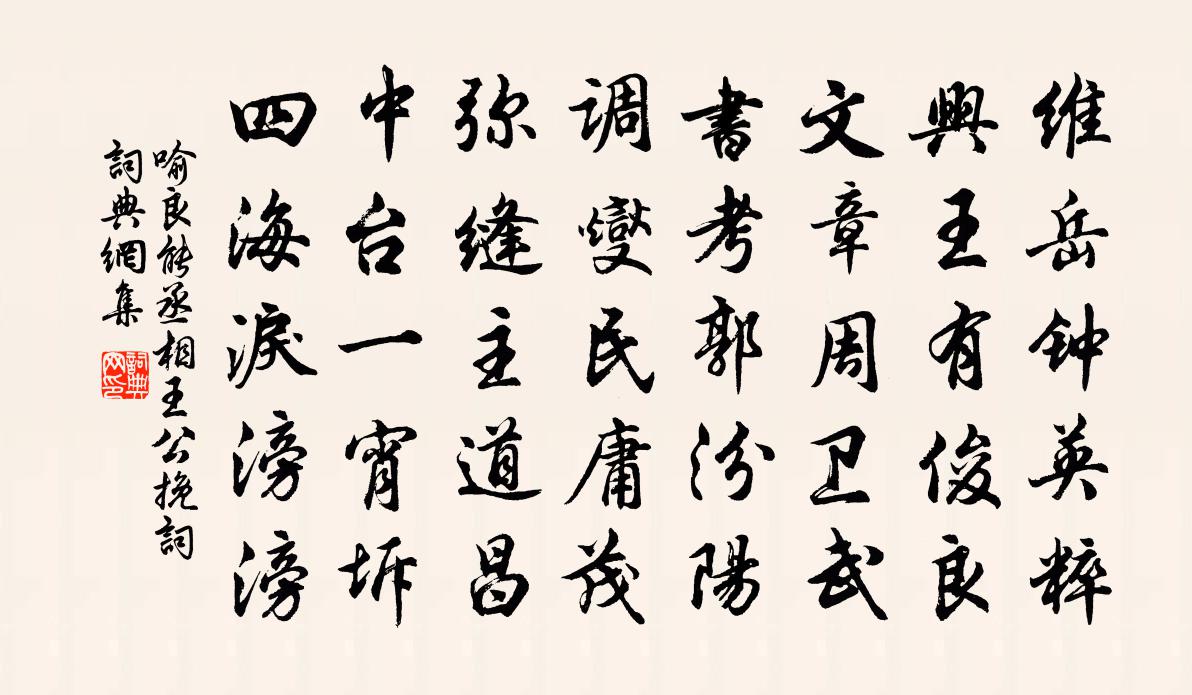 维岳钟英粹
興王有俊良
文章周卫武
書考郭汾陽
调燮民庸茂
弥缝主道昌
中台一宵坼
四海淚滂滂
喻良能丞相王公挽詞
詞典網集
詞典网印